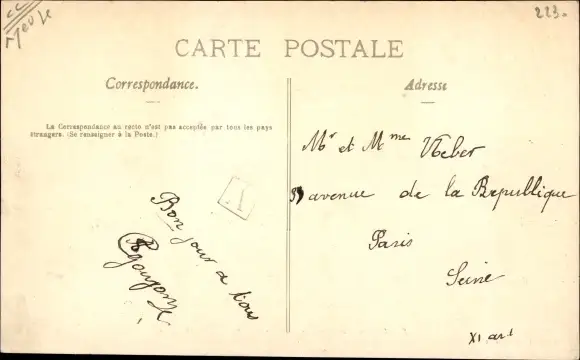 Meuse
223.
CARTE POSTALE
Correspondance.
Adresse
La Correspondance au recto n'est pas acceptée par tous les pays
étrangers. (Se renseigner à la Poste.)
Mr et Mme Weber
avenue de la République
Paris
Seine
XI art
A
Bonjour a tous